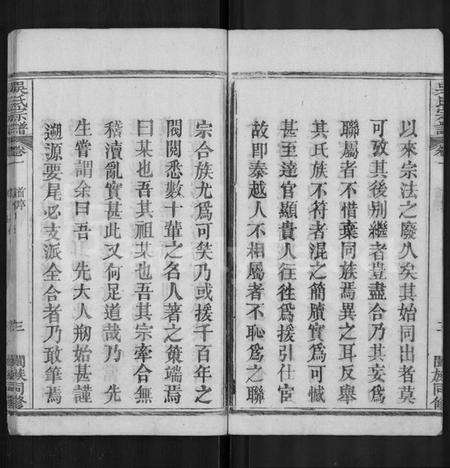 以來宗法之廢久矣其始同出者莫
可攷其後別繼者豈盡合乃其妄爲
聯屬者不惜棄同族焉異之耳反舉
其氏族不符者混之簡牘實爲可慽
甚至達官顯貴人徃徃爲援引仕宦
故卽泰越人不相屬者不恥爲之聯
宗合族尤爲可笑乃或援千百年之
閥閱悉數十輩之名人著之策端焉
曰某也吾其祖某也吾其宗牽合無
稽瀆亂實甚此又何足道哉乃 先
生嘗謂余曰吾 先大人刱始甚謹
溯源要尾必支派全合者乃敢筆焉
吳氏宗譜 卷一 譜弊 三 闔族同修